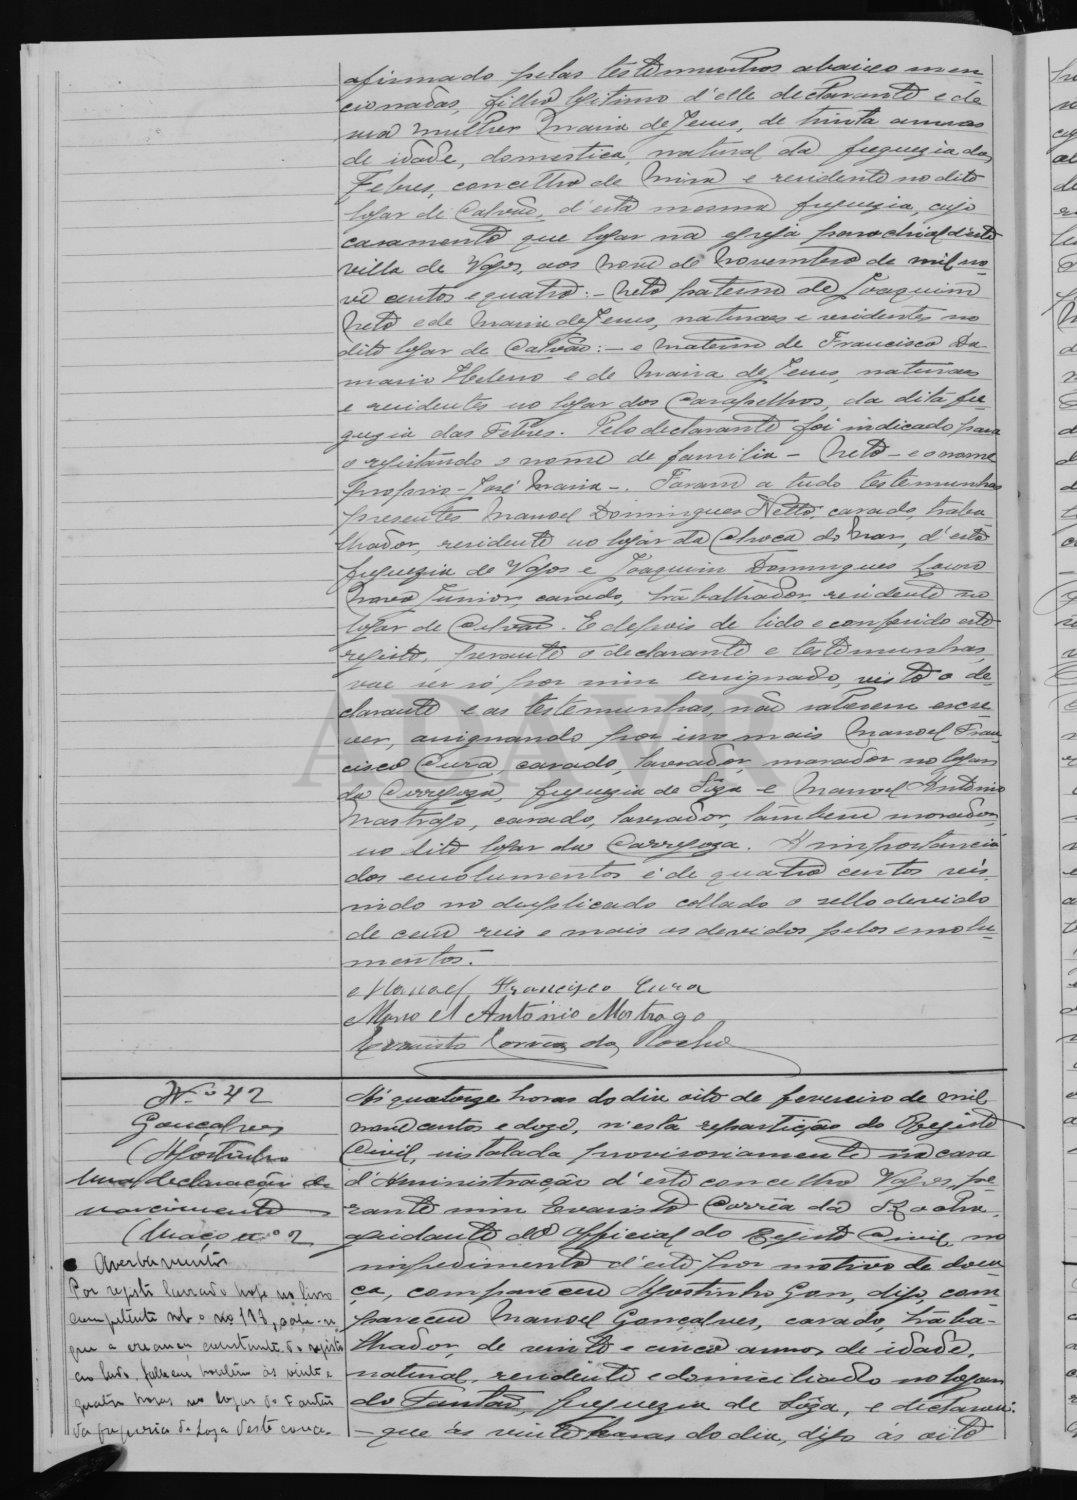 afirmado pelas testemunhas abaixo men-
cionadas, filho legitimo d'elle declarante e de
sua mulher Maria de Jesus, de trinta annos
de idade, domestica, natural da freguezia das
Febres, concelho de Mira e residente no dito
logar de Calvão, d'esta mesma freguezia, cujo
casamento que logar na egreja parochial d'esta
villa de Vagos, aos nove de Novembro de mil no-
ve centos e quatro: - Neto paterno de Joaquim
Neto e de Maria de Jesus, naturaes e residentes no
dito logar de Calvão: - e materno de Francisco Da-
masio Heleno e de Maria de Jesus, naturaes
e residentes no logar dos Carapelhos, da dita fre-
guezia das Febres. Pelo declarante foi indicado para
o registando o nome de familia - Neto - e o nome
proprio - José Maria -. Foram a tudo testemunhas
presentes Manoel Domingues Netto, casado, traba-
lhador, residente no logar da Choca do Mar, d'esta
freguezia de Vagos e Joaquim Domingues Louro
Novo Junior, casado, trabalhador, residente no
logar de Calvão. E depois de lido e conferido este
registo, perante o declarante e testemunhas,
vae ser só por mim assignado, visto o de-
clarante e as testemunhas, não saberem escre-
ver, assignando por isso mais Manoel Fran-
cisco Cura, casado, lavrador, morador no logar
da Corregoza, freguezia de Sôza e Manoel Antonio
Mostrago, casado, lavrador, tambem morador,
no dito logar da Carregoza. A importancia
dos emolumentos é de quatro centos reis,
indo no duplicado collado o sello devido
de cem reis e mais os devidos pelos emolu-
mentos.
Manoel Francisco Cura
Manoel António Mostrago
Evaristo Corrêa da Rocha
N.º 42
Gonçalves
Agostinho
Uma declaração de
nascimento
(Maço n.º 2
Averbamentos
Por registo lavrado hoje no livro
competente sob o no 113, consta-
que a creança constante do registo
ao lado, falleceu hontem às vinte e
quatro horas no logar do Fontão
da freguezia de Soza d'este conce-
Ás quatorze horas do dia oito de fevereiro de mil
nove centos e doze, n'esta repartição do Registo
Civil, instalada provisoriamente na casa
d'Administração d'este concelho Vagos, pe-
rante mim Evaristo Corrêa da Rocha,
ajudante do Official do Registo Civil, no
impedimento d'este por motivo de doen-
ça, compareceu Agostinho Gon, digo, com
pareceu Manoel Gonçalves, casado, traba-
lhador, de vinte e cinco annos de idade,
natural, residente e domiciliado no logar
do Fontão, freguezia de Sôza, e declarou:
- que ás vinte horas do dia, digo ás oito